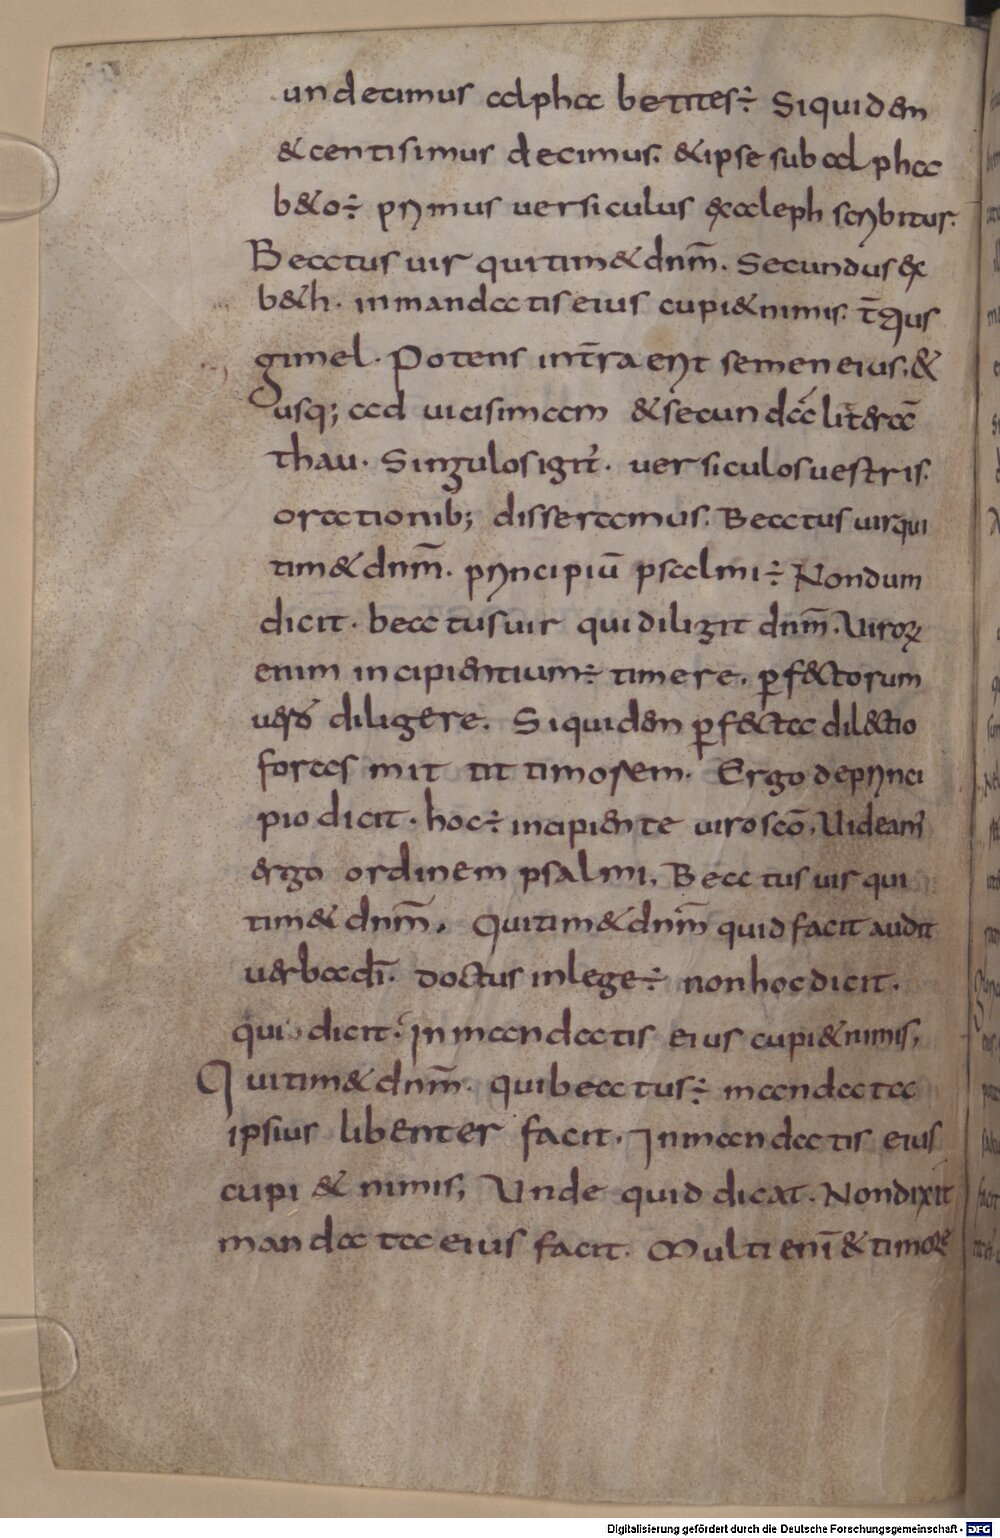 undecimus alphabetites÷ Siquidem
&centisimus decimus. &ipse sub alpha
b&o÷ primus uersiculus exaleph scribitus.
Beatus uir qui tim&dnm̄. Secundus ex
b&h. inmandatis eius cupi&nimis. t̄cius
gimel. Potens int̄ra erit semen eius. &
usq; ad uicisimam &secundā literā
thau. Singulos igit̉. uersiculos uestris.
orationib; disseramus. Beatus uir qui
tim&dnm̄. principiū psalmi÷ Nondum
dicit. beatus uir qui diligit dnm̄. Uiroꝝ
enim incipientium÷ timere. ꝑf&ctorum
uero diligere. Siquidem ꝑf&cta dil&ctio
foras mittit timorem. Ergo deprinci
pio dicit. hoc÷ incipiente uiro scō. Uideam̉
ergo ordinem psalmi. Beatus uir qui
tim& dnm̄. Qui tim&dnm̄ quid facit audit
uerba dī. doctus inlege÷ non hoc dicit.
qui dicit. Inmandatis eius cupi&nimis.
Qui tim&dnm̄. qui beatus÷ mandata
ipsius libenter facit. Inmandatis eius
cupi & nimis; Unde quid dicat. Nondixit
mandata eius facit. Multi enī &timore
Digitalisierung gefördert durch die Deutsche Forschungsgemeinschaft - DFG